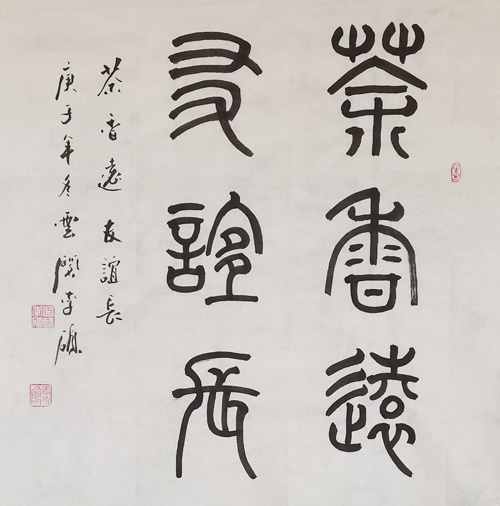 茶香遠
友誼長
茶香遠友誼長
庚子年冬雲間李